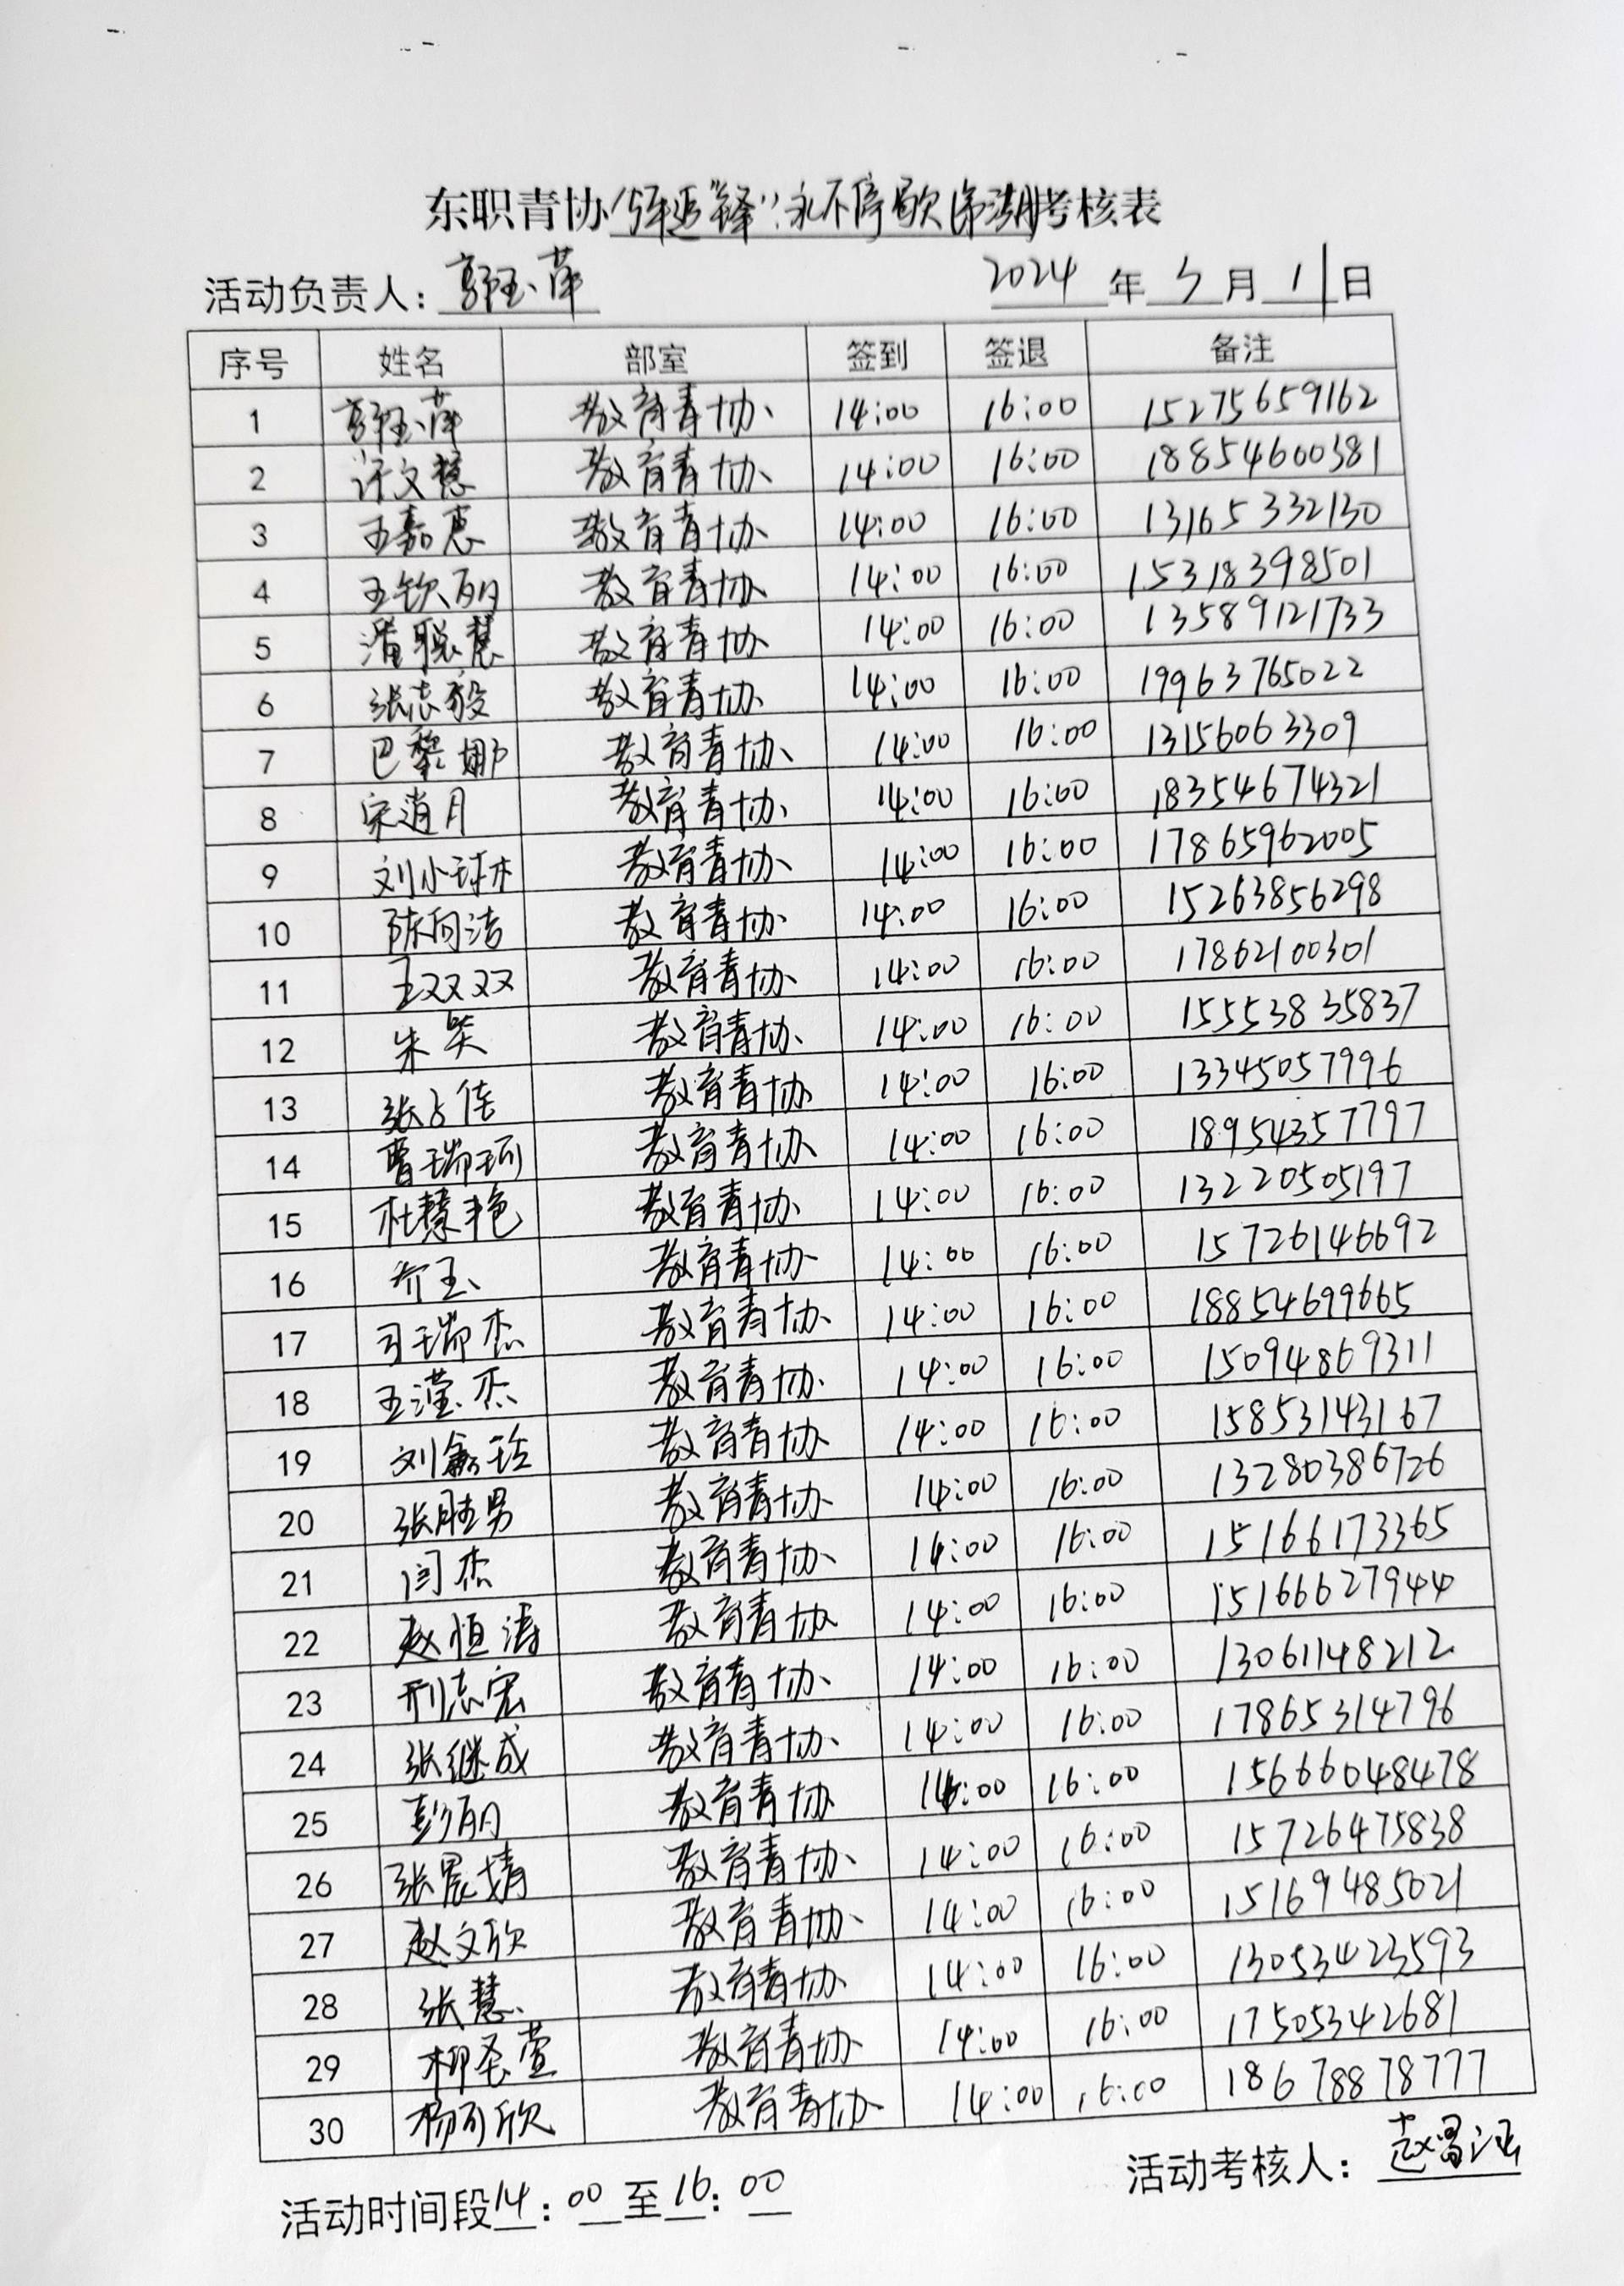 东职青协“年追“锋”,永不停歇(清湖)考核表
活动负责人：郭玉萍 2024年3月11日
序号 姓名 部室 签到 签退 备注
1 郭玉萍 教育青协 14:00 16:00 15275659162
2 许文慧 教育青协 14:00 16:00 18854600381
3 王嘉惠 教育青协 14:00 16:00 13165332130
4 王钦丽 教育青协 14:00 16:00 15318398501
5 潘聪慧 教育青协 14:00 16:00 13589121733
6 张志毅 教育青协 14:00 16:00 19963765022
7 巴黎娜 教育青协 14:00 16:00 13156063309
8 宋逍月 教育青协 14:00 16:00 18354674321
9 刘小琳 教育青协 14:00 16:00 17865962005
10 陈向洁 教育青协 14:00 16:00 15263856298
11 王双双 教育青协 14:00 16:00 17862100301
12 朱笑 教育青协 14:00 16:00 15553835837
13 张占佳 教育青协 14:00 16:00 13345057996
14 曹瑞珂 教育青协 14:00 16:00 18954357797
15 杜慧艳 教育青协 14:00 16:00 13220505197
16 乔玉 教育青协 14:00 16:00 15726146692
17 司瑞杰 教育青协 14:00 16:00 18854699665
18 王滢杰 教育青协 14:00 16:00 15094869311
19 刘鑫玲 教育青协 14:00 16:00 15853143167
20 张胜男 教育青协 14:00 16:00 13280386726
21 闫杰 教育青协 14:00 16:00 15166173365
22 赵恒涛 教育青协 14:00 16:00 15166627944
23 刑志宏 教育青协 14:00 16:00 13061148212
24 张继成 教育青协 14:00 16:00 17865314796
25 彭丽 教育青协 14:00 16:00 15666048478
26 张晨婧 教育青协 14:00 16:00 15726475838
27 赵文欣 教育青协 14:00 16:00 15169485021
28 张慧 教育青协 14:00 16:00 13053423593
29 柳圣萱 教育青协 14:00 16:00 17505342681
30 杨可欣 教育青协 14:00 16:00 18678878777
活动考核人：赵昌
活动时间段14：00至16：00